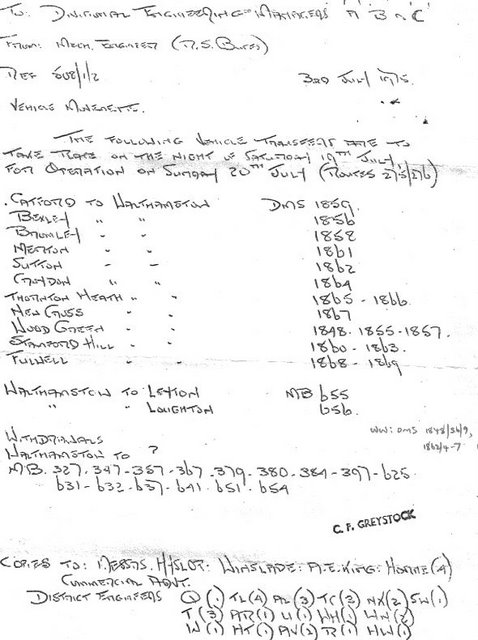 To: Divisional Engineering Managers 'A' 'B' & 'C'
From: Mech. Engineer (R.S. Bates)
Ref 808/1/2 3rd July 1975.
Vehicle Movements.
The following vehicle transfers are to
take place on the night of Saturday 19th July,
for operation on Sunday 20th July (Routes 275/276)
Catford to Walthamstow DMS 1859.
Bexley " " 1856
Bromley " " 1858
Merton " " 1861
Sutton " " 1862
Croydon " " 1864
Thornton Heath " " 1865 - 1866
New Cross " " 1867
Wood Green " " 1848 - 1855 - 1857.
Stamford Hill " " 1860 - 1863.
Fulwell " " 1868 - 1869
Walthamstow to Leyton MB 655
" " Loughton 656.
WW: DMS 1848/56/9,
1862/4-7
Withdrawals
Walthamstow to ?
MB. 327 - 347 - 357 - 367 - 379 - 380 - 384 - 397 - 625
631 - 632 - 637 - 641 - 651 - 654
C. F. GREYSTOCK
Copies to: Messrs. Hyslop: Winslade: A.E. King: Horne (4)
Commercial Advt.
District Engineers Q (1) TL (4) AL (3) TC (3) NX (2) SW (1)
T (3) AR (1) U (1) WH (1) WN (2)
W (1) HT (1) AV (1) R (1) HW (1)